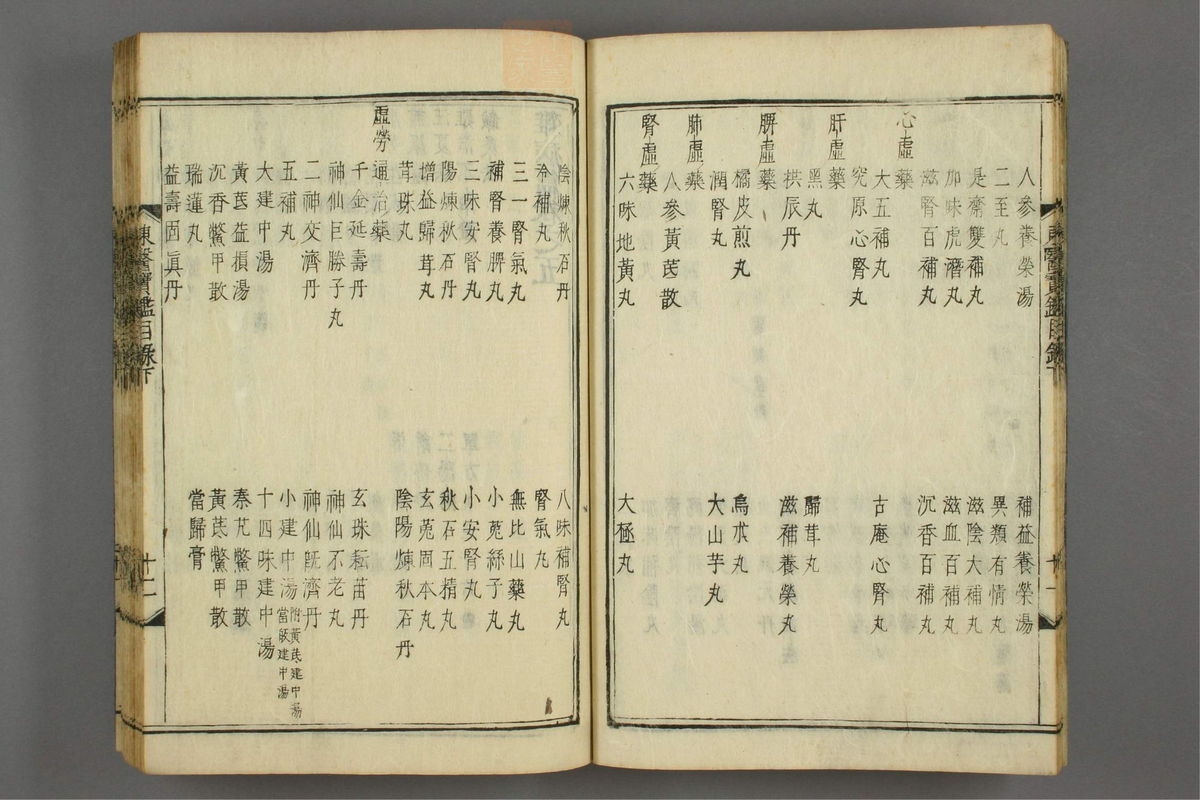 人參養榮湯
補益養榮湯
二至丸
異類有情丸
是齋雙補丸
滋陰大補丸
加味虎潛丸
滋血百補丸
滋腎百補丸
沉香百補丸
心虛藥
大五補丸
古庵心腎丸
究原心腎丸
肝虛藥
黑丸
歸茸丸
拱辰丹
滋補養榮丸
脾虛藥
橘皮煎丸
烏朮丸
潤腎丸
大山芋丸
肺虛藥
八參黃芪散
腎虛藥
六味地黃丸
大極丸
陰煉秋石丹
八味補腎丸
冷補丸
腎氣丸
三一腎氣丸
無比山藥丸
補腎養脾丸
小菟絲子丸
三味安腎丸
小安腎丸
陽煉秋石丹
秋石五精丸
增益歸茸丸
玄菟固本丸
茸珠丸
陰陽煉秋石丹
虛勞通治藥
千金延壽丹
玄珠耘苗丹
神仙巨勝子丸
神仙不老丸
二神交濟丹
神仙旣濟丹
五補丸
小建中湯 附黃芪建中湯 當歸建中湯
大建中湯
十四味建中湯
黃芪益損湯
秦艽鱉甲散
沉香鱉甲散
黃芪鱉甲散
瑞蓮丸
當歸膏
益壽固眞丹
東醫寶鑑目錄下
十二